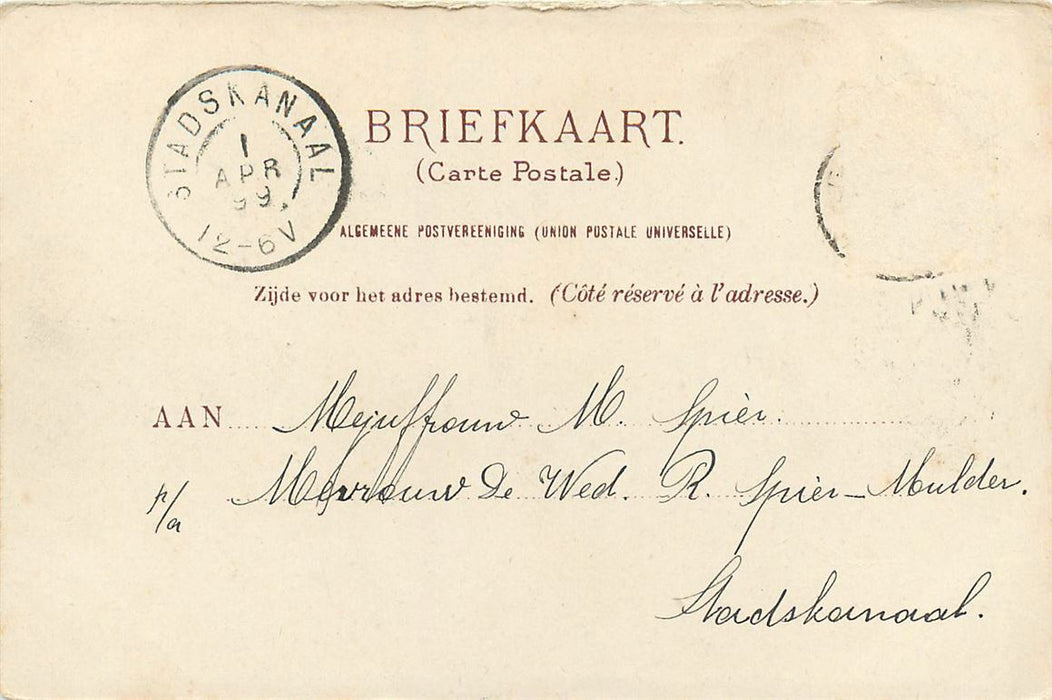 STADSKANAAL
1
APR
99
12-6V
BRIEFKAART.
(Carte Postale.)
ALGEMEENE POSTVEREENIGING (UNION POSTALE UNIVERSELLE)
Zijde voor het adres bestemd. (Côté réservé à l'adresse.)
AAN Mejuffrouw M. Spier.
p/a Mevrouw De Wed. R. Spier-Mulder.
Stadskanaal.